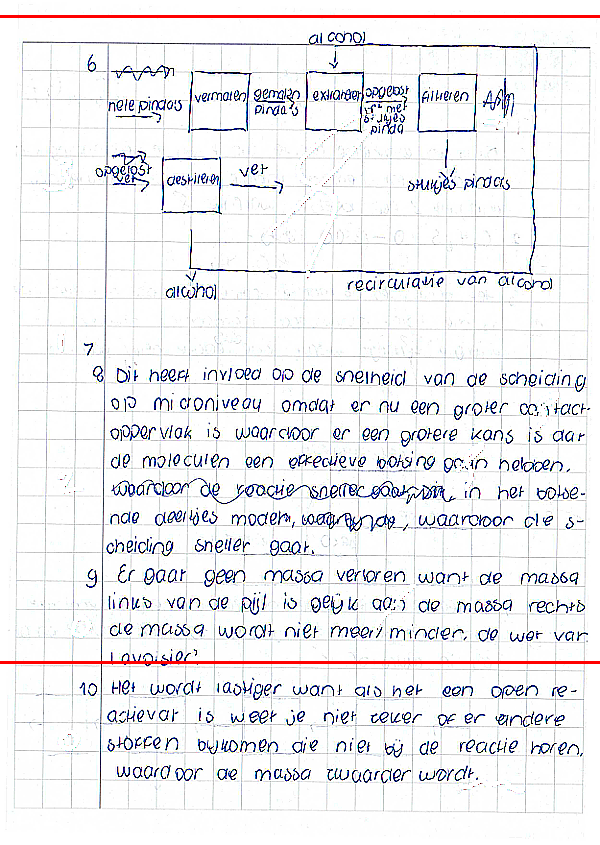 alcohol
6
hele pinda's
vermalen
gemalen
pinda's
extraheren
opgelost
vet met
stukjes
pinda
filtreren
stukjes pinda's
opgelost
vet
destilleren
vet
alcohol
recirculatie van alcohol
7
8 Dit heeft invloed op de snelheid van de scheiding
op microniveau omdat er nu een groter contact-
oppervlak is waardoor er een grotere kans is dat
de moleculen een effectieve botsing gaan hebben.
in het botse-
nde deeltjes model, waardoor de s-
cheiding sneller gaat.
9 Er gaat geen massa verloren want de massa
links van de pijl is gelijk aan de massa rechts
de massa wordt niet meer/minder. de wet van
Lavoisier
10 Het wordt lastiger want als het een open re-
actievat is weet je niet zeker of er andere
stoffen bijkomen die niet bij de reactie horen.
waardoor de massa zwaarder wordt.